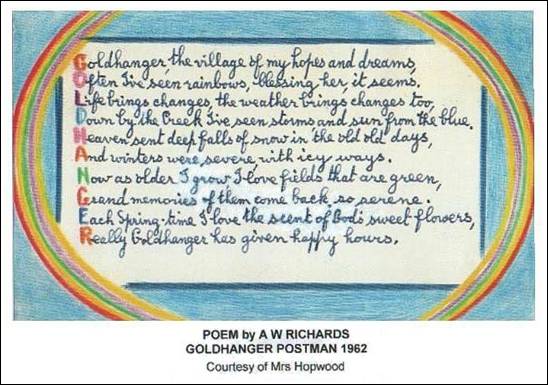 Goldhanger, the village of my hopes and dreams,
Often I've seen rainbows, blessing her, it seems.
Life brings changes, the weather brings changes too,
Down by the Creek I've seen storms and sun from the blue.
Heaven sent deep falls of snow in the old old days,
And winters were severe with icy ways.
Now as older I grow I love fields that are green,
Grand memories of them come back so serene.
Each Spring-time I love the scent of God's sweet flowers,
Really Goldhanger has given happy hours.
POEM by A W RICHARDS
GOLDHANGER POSTMAN 1962
Courtesy of Mrs Hopwood